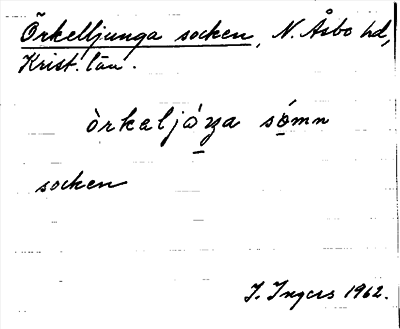 Örkelljunga socken, N. Åsbo hd,
Krist. län.
örkaljo̱ŋa so̱mn
socken
I. Ingers 1962.